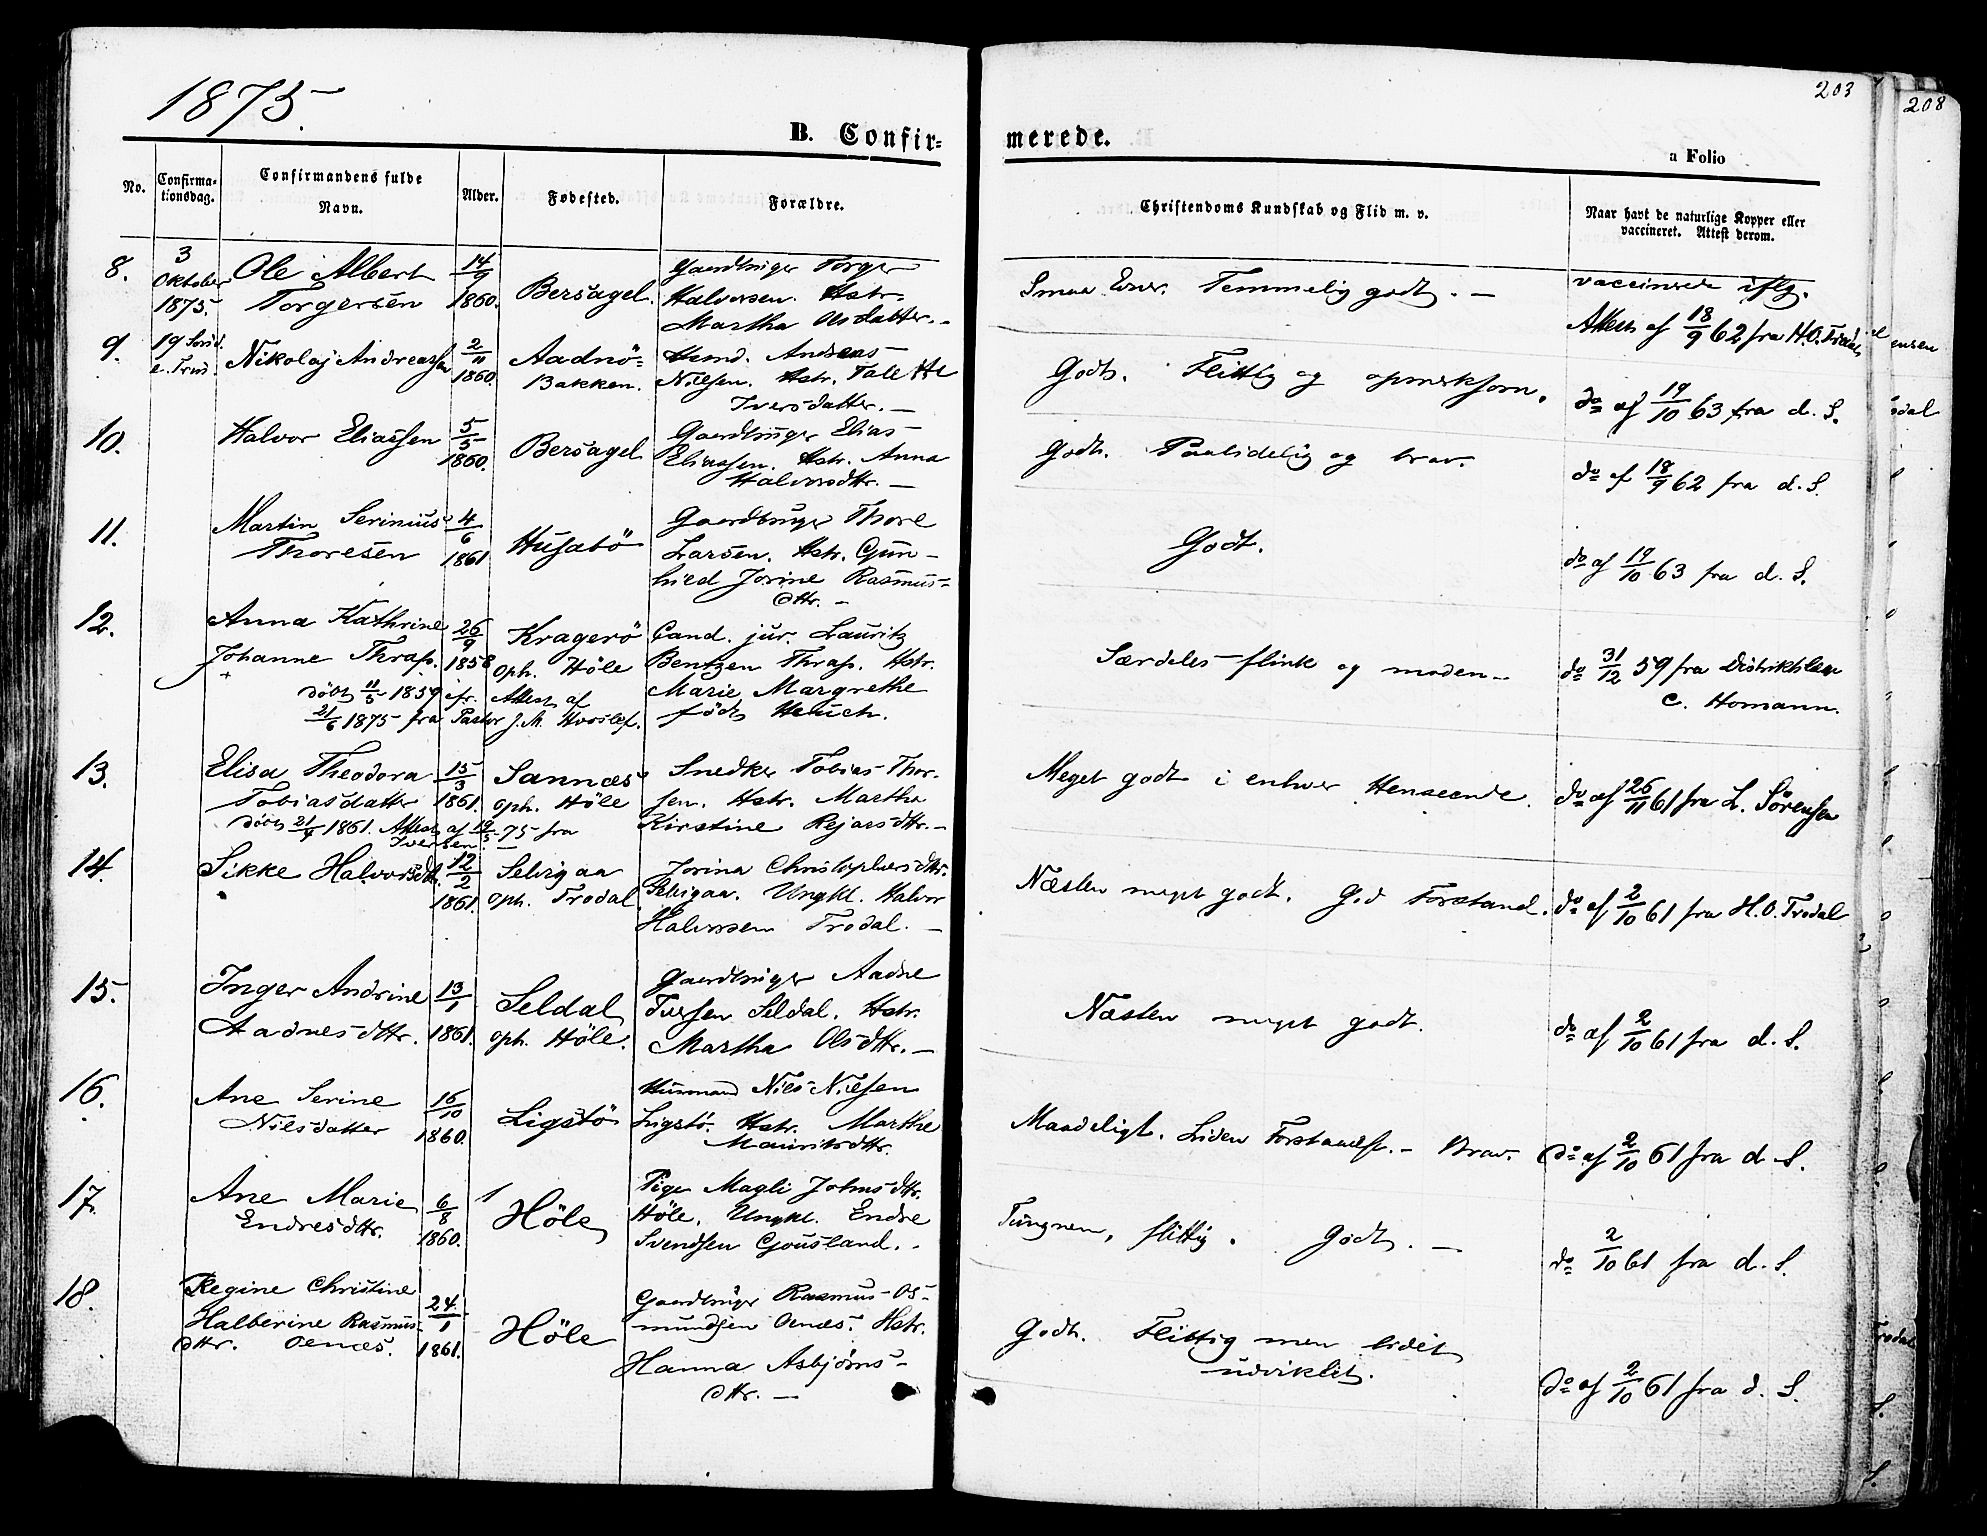 1875.
203
208
B. Confir=
merede.
a Folio
No.
Confirma-
tionsdag.
Confirmandens fulde
Navn.
Alder.
Fødested.
Forældre.
Christendoms Kundskab og Flid m. v.
Naar havt de naturlige Kopper eller
vaccineret. Attest derom.
8.
3
Oktober
1875.
Ole Albert
Torgersen
14/9
1860.
Bersagel.
Gaardbruger Torger
Halvorsen. Hstr.
Martha Olsdatter. -
Smaa Evner. Temmelig godt. -
vaccinerede iflg.
Attest af 18/9 62 fra H.O. Trodal
9.
19 Sønd.
e. Trin.
Nikolaj Andreassen
2/11
1860.
Aadnö-
Bakken.
Husmd. Andreas
Nilsen. Hstr. Talette
Iversdatter. -
Godt. Flittig og opmerksom.
do af 19/10 63 fra d. S.
10.
Halvor Eliassen
5/5
1860.
Bersagel
Gaardbruger Elias
Eliassen. Hstr. Anna
Halvorsdttr. -
Godt. Paalidelig og brav.
do af 18/9 62 fra d. S.
11.
Martin Serinius
Thoresen
4/6
1861
Husabö
Gaardbruger Thore
Larsen. Hstr. Gun-
hild Jorine Rasmus-
dttr. -
Godt.
do af 19/10 63 fra d. S.
12.
Anna Kathrine
Johanne Thrap.
26/9
1858
Kragerö
oph. Höle
döbt 11/5 1859 ifr. Attest af
21/6 1875 fra Pastor J. M. Hvoslef.
Cand. jur. Lauritz
Bentzen Thrap. Hstr.
Marie Margrethe
født Heuch.
Særdeles flink og moden -
do 31/12 59 fra Distriktslæge
C. Homann.
13.
Elisa Theodora
Tobiasdatter
15/3
1861.
Sannæs
oph. Höle
döbt 21/4 1861. Attest af 19/5 75 fra
Iversen.
Snedker Tobias Thor-
sen. Hstr. Martha
Kirstine Rejarsdttr. -
Meget godt i enhver Henseende.
do af 26/11 61 fra L. Sörensen
14.
Sikke Halvorsdtt.
12/2
1861.
Selvigaa
oph. Trodal
Jorina Christophersdttr.
Selvigaa. Ungkl. Halvor
Halvorsen Trodal. -
Næsten meget godt. God Forstand.
do af 2/10 61 fra H. O. Trodal
15.
Inger Andrine
Aadnesdttr.
13/1
1861.
Seldal
oph. Höle.
Gaardbruger Aadne
Tuesen Seldal. Hstr.
Martha Olsdttr. -
Næsten meget godt.
do af 2/10 61 fra d. S.
16.
Ane Serine
Nilsdatter
16/10
1860.
Ligstö
Husmand Nils Nilsen
Ligstö. Hstr. Marthe
Mauritsdttr.
Maadeligt. Liden Forstandsf. - Brav.
do af 2/10 61 fra d S.
17.
Ane Marie
Endresdttr.
6/8
1860.
Höle
Pige Magli Johnsdttr.
Höle. Ungkl. Endre
Svendsen Gousland. -
Tungnem, flittig. Godt. -
do 2/10 61 fra d. S.
18.
Regine Christine
Halberine Rasmus-
dttr. Oenæs.
24/1
1861.
Höle
Gaardbruger Rasmus Os-
mundsen Oenæs. Hstr.
Hanna Asbjörns-
dttr. -
Godt. Flittig men lidet
udviklet.
do af 2/10 61 fra d. S.